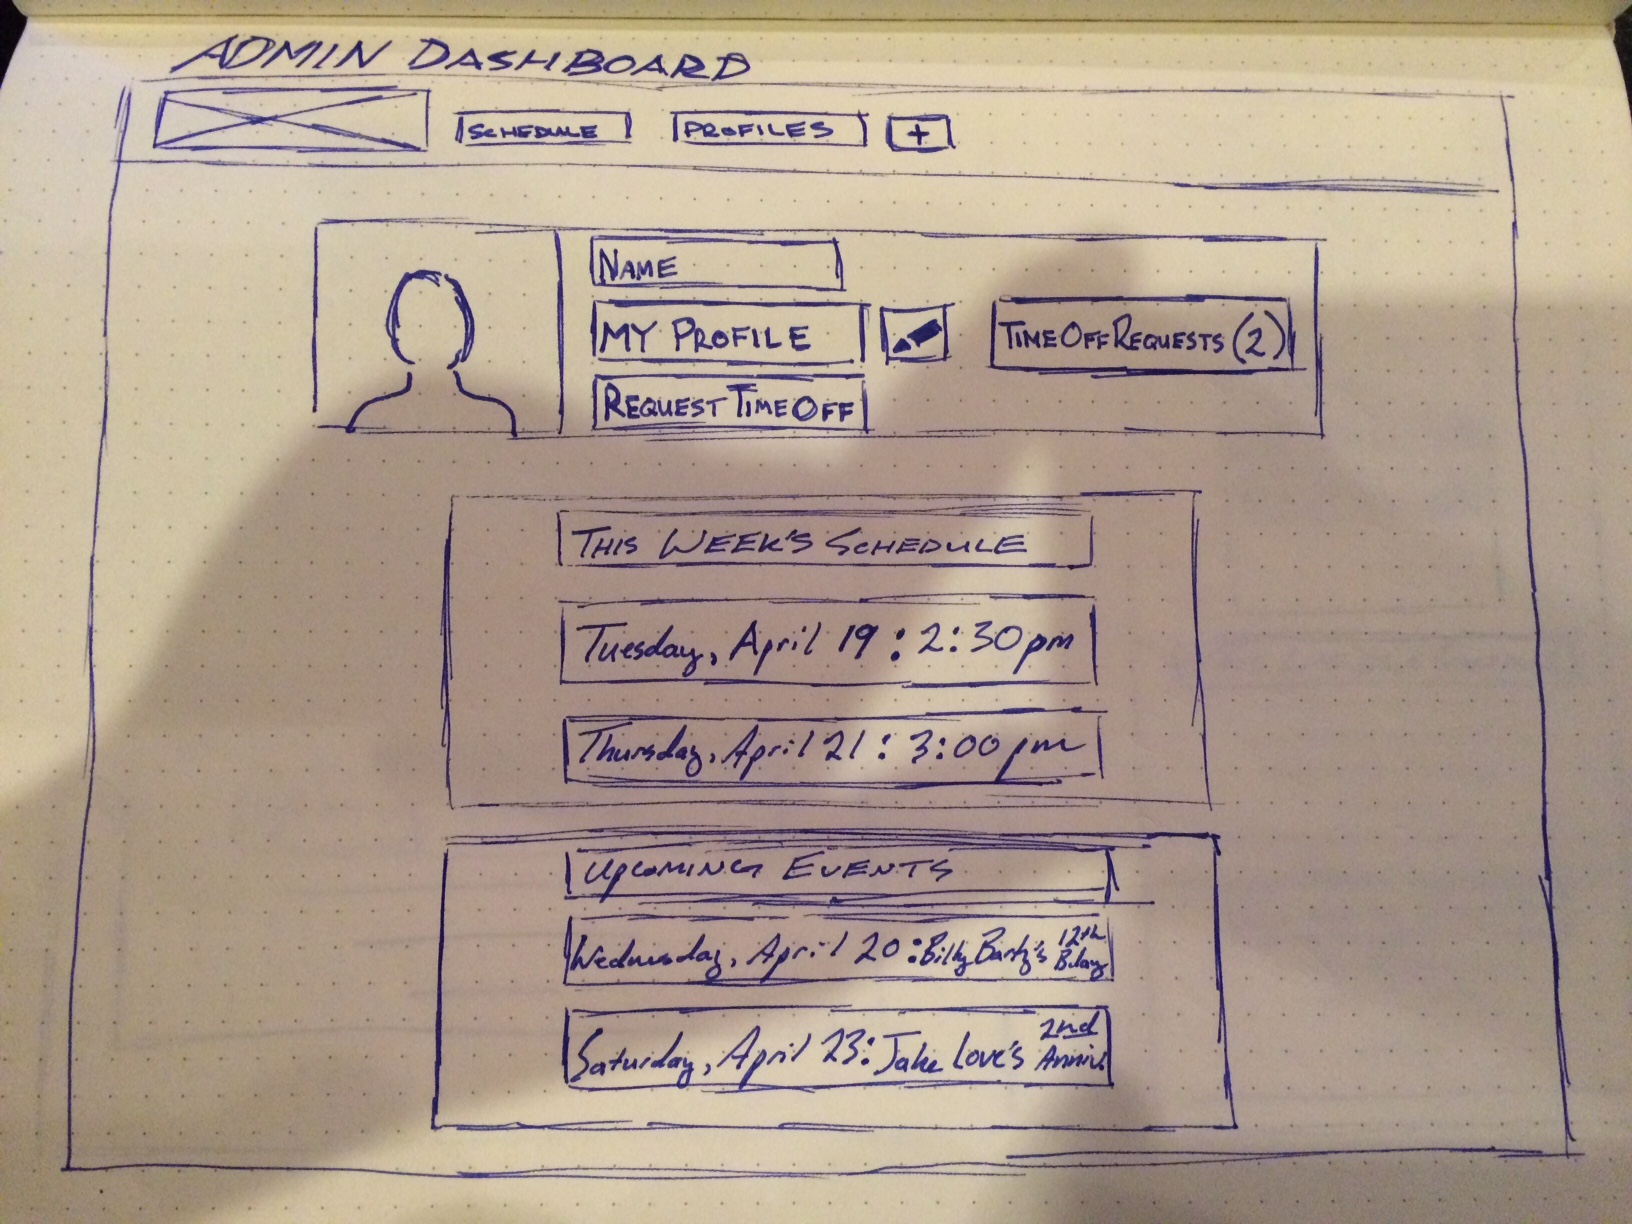 ADMIN DASHBOARD
SCHEDULE PROFILES +
NAME
MY PROFILE
TIME OFF REQUESTS (2)
REQUEST TIME OFF
THIS WEEK'S SCHEDULE
Tuesday, April 19 : 2:30pm
Thursday, April 21 : 3:00 pm
UPCOMING EVENTS
Wednesday, April 20 : Billy Barty's 12th Bday
Saturday, April 23 : Jake Love's 2nd Anniv